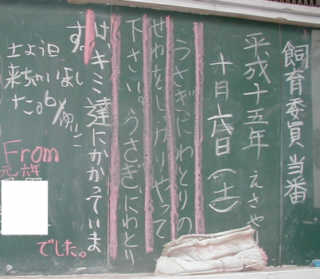 飼育委員 当番
平成十五年 えさや
十月六日(土)
うさぎにわとりの
せわをしっかりやって
下さい。うさぎにわとり
はキミ達にかかっていま
す。
土よう日
来ちゃいまし
た。
From
でした。